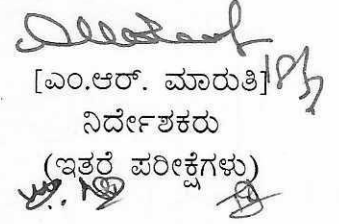 [ಎಂ.ಆರ್. ಮಾರುತಿ]
ನಿರ್ದೇಶಕರು
(ಇತರೆ ಪರೀಕ್ಷೆಗಳು)